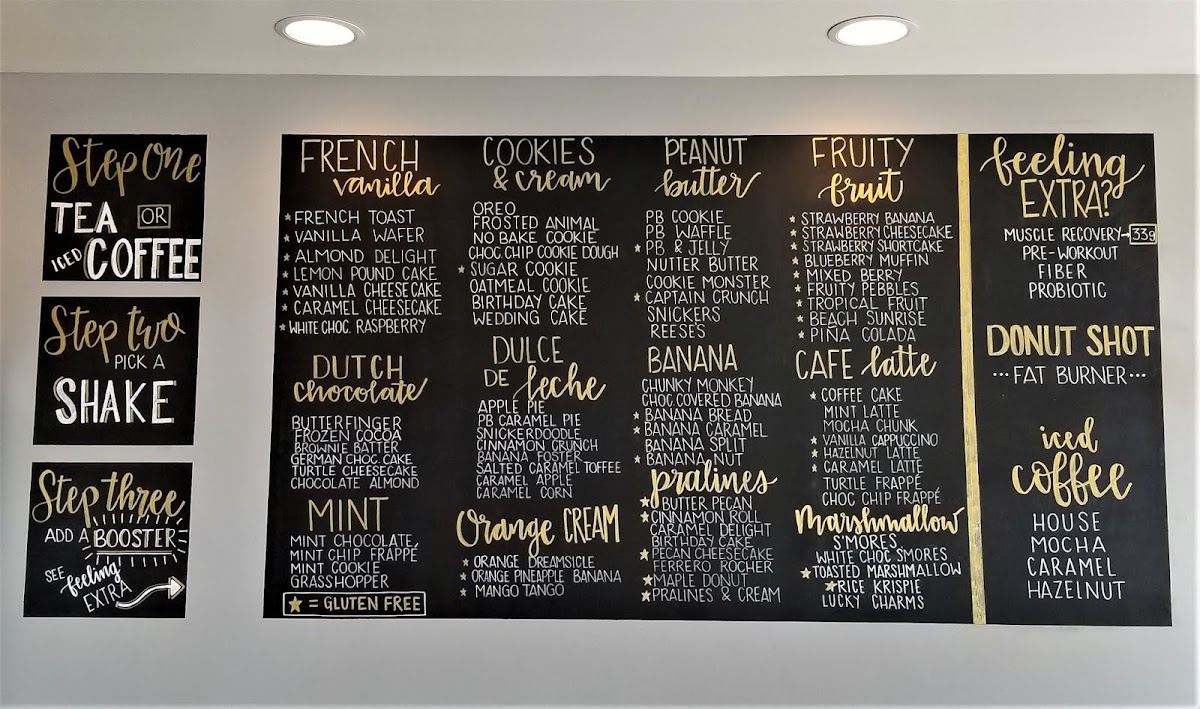 Step One
TEA OR
ICED COFFEE
Step two
PICK A
SHAKE
Step three
ADD A BOOSTER
SEE feeling
EXTRA
FRENCH
vanilla
★ FRENCH TOAST
★ VANILLA WAFER
★ ALMOND DELIGHT
★ LEMON POUND CAKE
★ VANILLA CHEESECAKE
★ CARAMEL CHEESECAKE
★ WHITE CHOC. RASPBERRY
DUTCH
chocolate
BUTTERFINGER
FROZEN COCOA
BROWNIE BATTER
GERMAN CHOC. CAKE
TURTLE CHEESECAKE
CHOCOLATE ALMOND
MINT
MINT CHOCOLATE
MINT CHIP FRAPPÉ
MINT COOKIE
GRASSHOPPER
★ = GLUTEN FREE
COOKIES
& cream
OREO
FROSTED ANIMAL
NO BAKE COOKIE
CHOC. CHIP COOKIE DOUGH
★ SUGAR COOKIE
OATMEAL COOKIE
BIRTHDAY CAKE
WEDDING CAKE
DULCE
DE leche
APPLE PIE
PB CARAMEL PIE
SNICKERDOODLE
CINNAMON CRUNCH
BANANA FOSTER
SALTED CARAMEL TOFFEE
CARAMEL APPLE
CARAMEL CORN
Orange CREAM
★ ORANGE DREAMSICLE
★ ORANGE PINEAPPLE BANANA
★ MANGO TANGO
PEANUT
butter
PB COOKIE
PB WAFFLE
★ PB & JELLY
NUTTER BUTTER
COOKIE MONSTER
★ CAPTAIN CRUNCH
SNICKERS
REESE'S
BANANA
CHUNKY MONKEY
CHOC. COVERED BANANA
★ BANANA BREAD
★ BANANA CARAMEL
BANANA SPLIT
★ BANANA NUT
pralines
★ BUTTER PECAN
★ CINNAMON ROLL
CARAMEL DELIGHT
BIRTHDAY CAKE
★ PECAN CHEESECAKE
FERRERO ROCHER
★ MAPLE DONUT
★ PRALINES & CREAM
FRUITY
fruit
★ STRAWBERRY BANANA
★ STRAWBERRY CHEESECAKE
★ STRAWBERRY SHORTCAKE
★ BLUEBERRY MUFFIN
★ MIXED BERRY
★ FRUITY PEBBLES
★ TROPICAL FRUIT
★ BEACH SUNRISE
★ PIÑA COLADA
CAFE latte
★ COFFEE CAKE
MINT LATTE
MOCHA CHUNK
★ VANILLA CAPPUCCINO
★ HAZELNUT LATTE
★ CARAMEL LATTE
TURTLE FRAPPÉ
CHOC CHIP FRAPPÉ
Marshmallow
S'MORES
WHITE CHOC S'MORES
★ TOASTED MARSHMALLOW
★ RICE KRISPIE
LUCKY CHARMS
feeling
EXTRA?
MUSCLE RECOVERY → 33g
PRE-WORKOUT
FIBER
PROBIOTIC
DONUT SHOT
... FAT BURNER ...
iced
coffee
HOUSE
MOCHA
CARAMEL
HAZELNUT